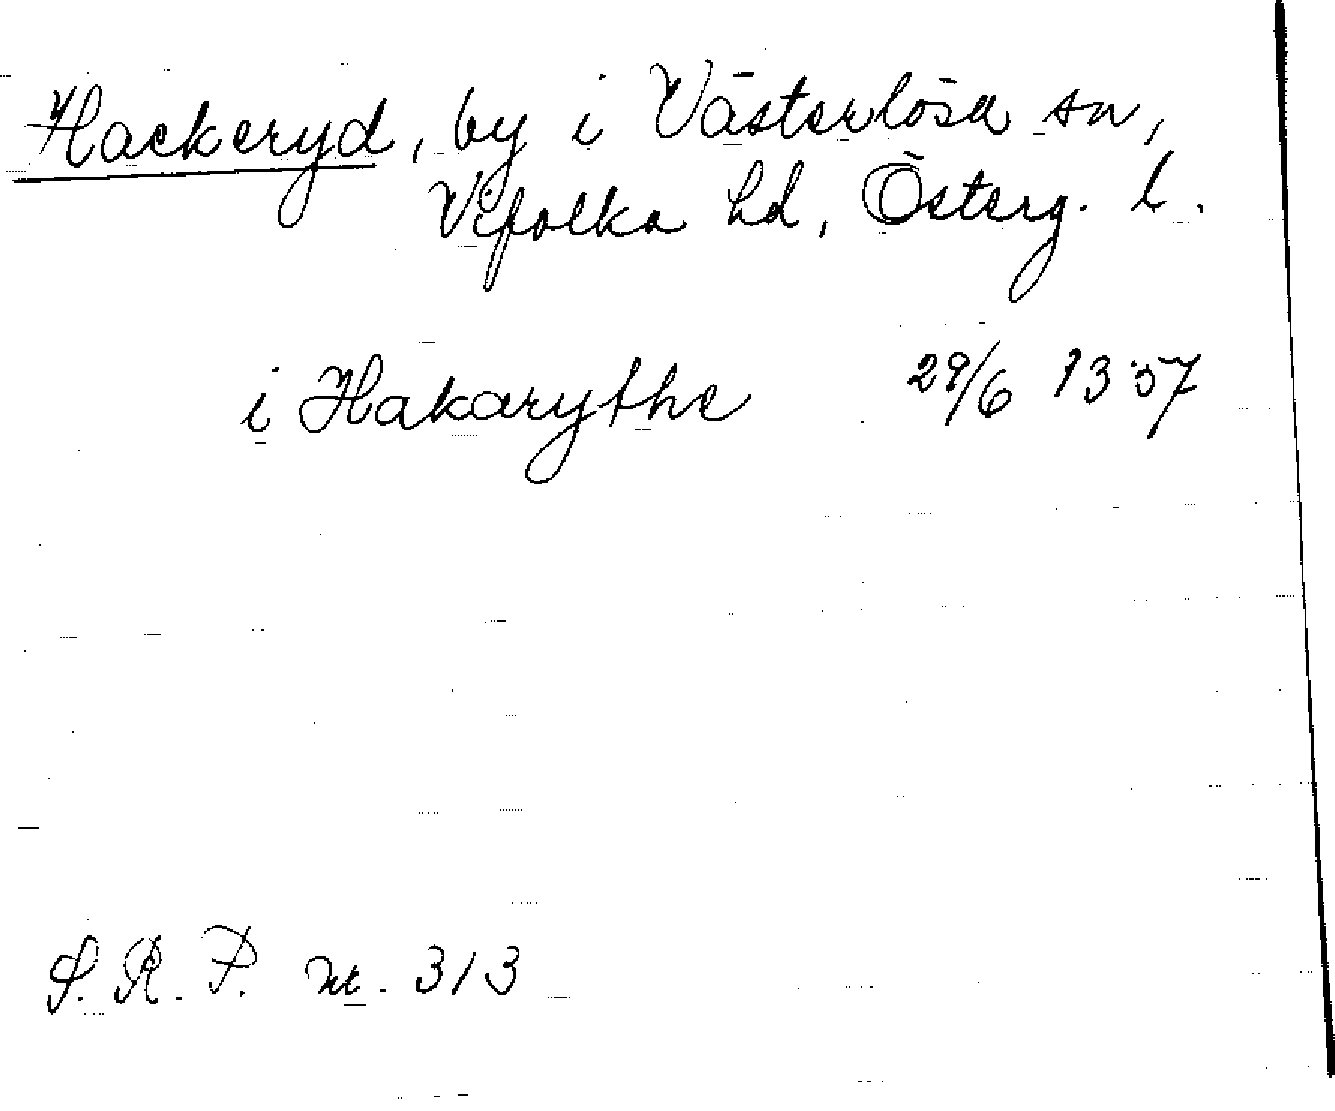 Hackeryd, by i Västerlösa sn,
Vifolka hd, Österg. l.
i Hakarythe 29/6 1357
S. R. P. nr. 313